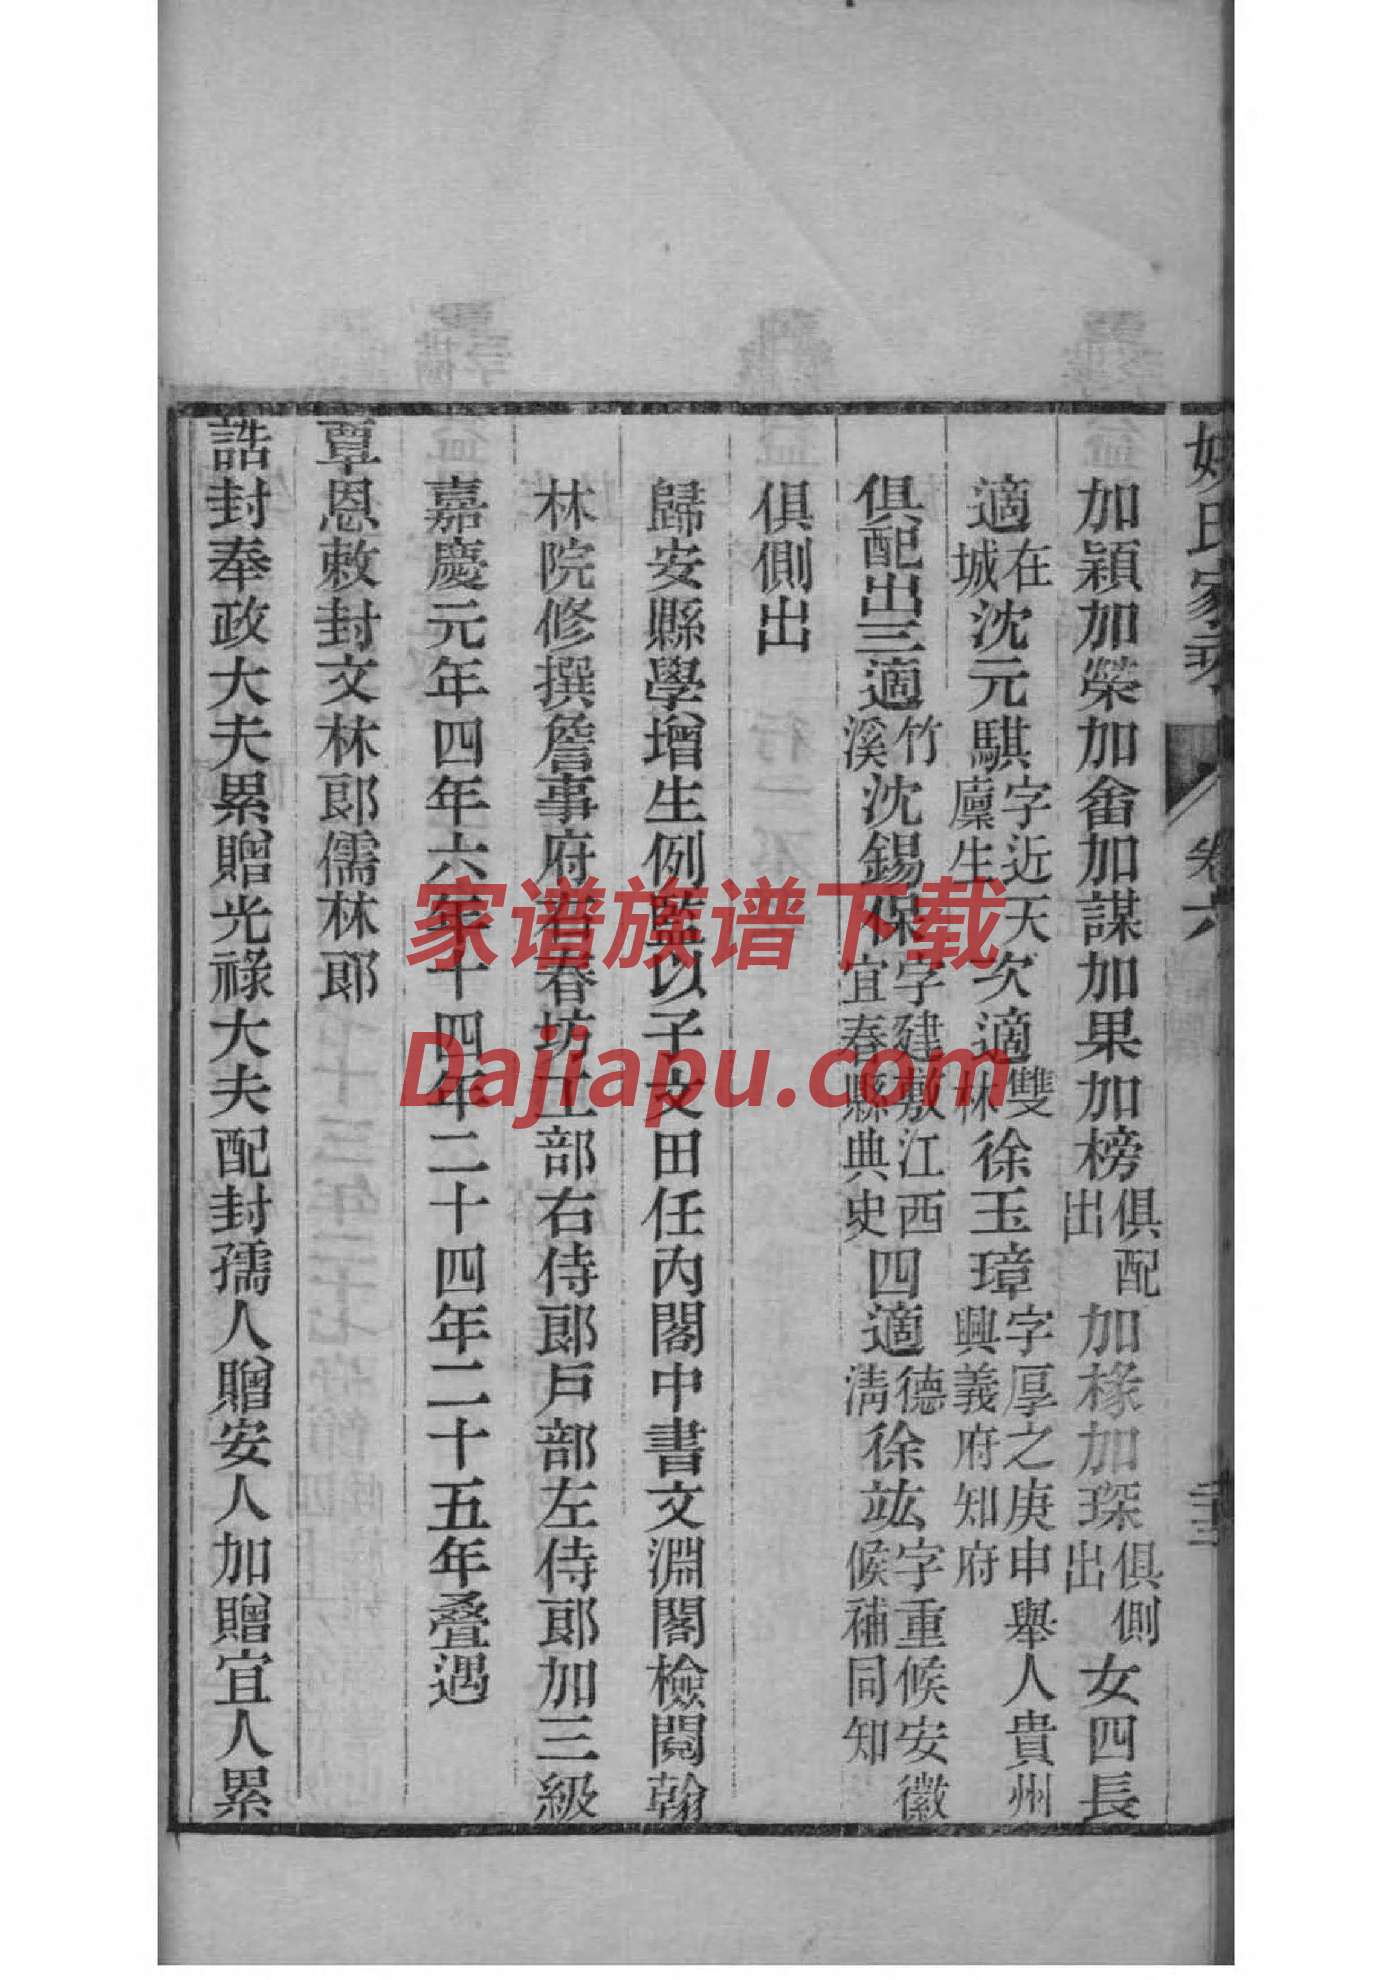 姚氏家乘 卷六 二十三
加穎加榮加畬加謀加果加榜俱配出加椽加琛俱側出女四長
適在城沈元騏字近天廩生次適雙林徐玉璋字厚之庚申舉人貴州興義府知府
俱配出三適竹溪沈錫保字建敷江西宜春縣典史四適德清徐竑字重候安徽候補同知
俱側出
歸安縣學增生例監以子文田任內閣中書文淵閣檢閱翰
林院修撰詹事府右春坊工部右侍郎戶部左侍郎加三級
嘉慶元年四年六年十四年二十四年二十五年叠遇
覃恩敕封文林郎儒林郎
誥封奉政大夫累贈光祿大夫配封孺人贈安人加贈宜人累
家谱族谱下载
Dajiapu.com